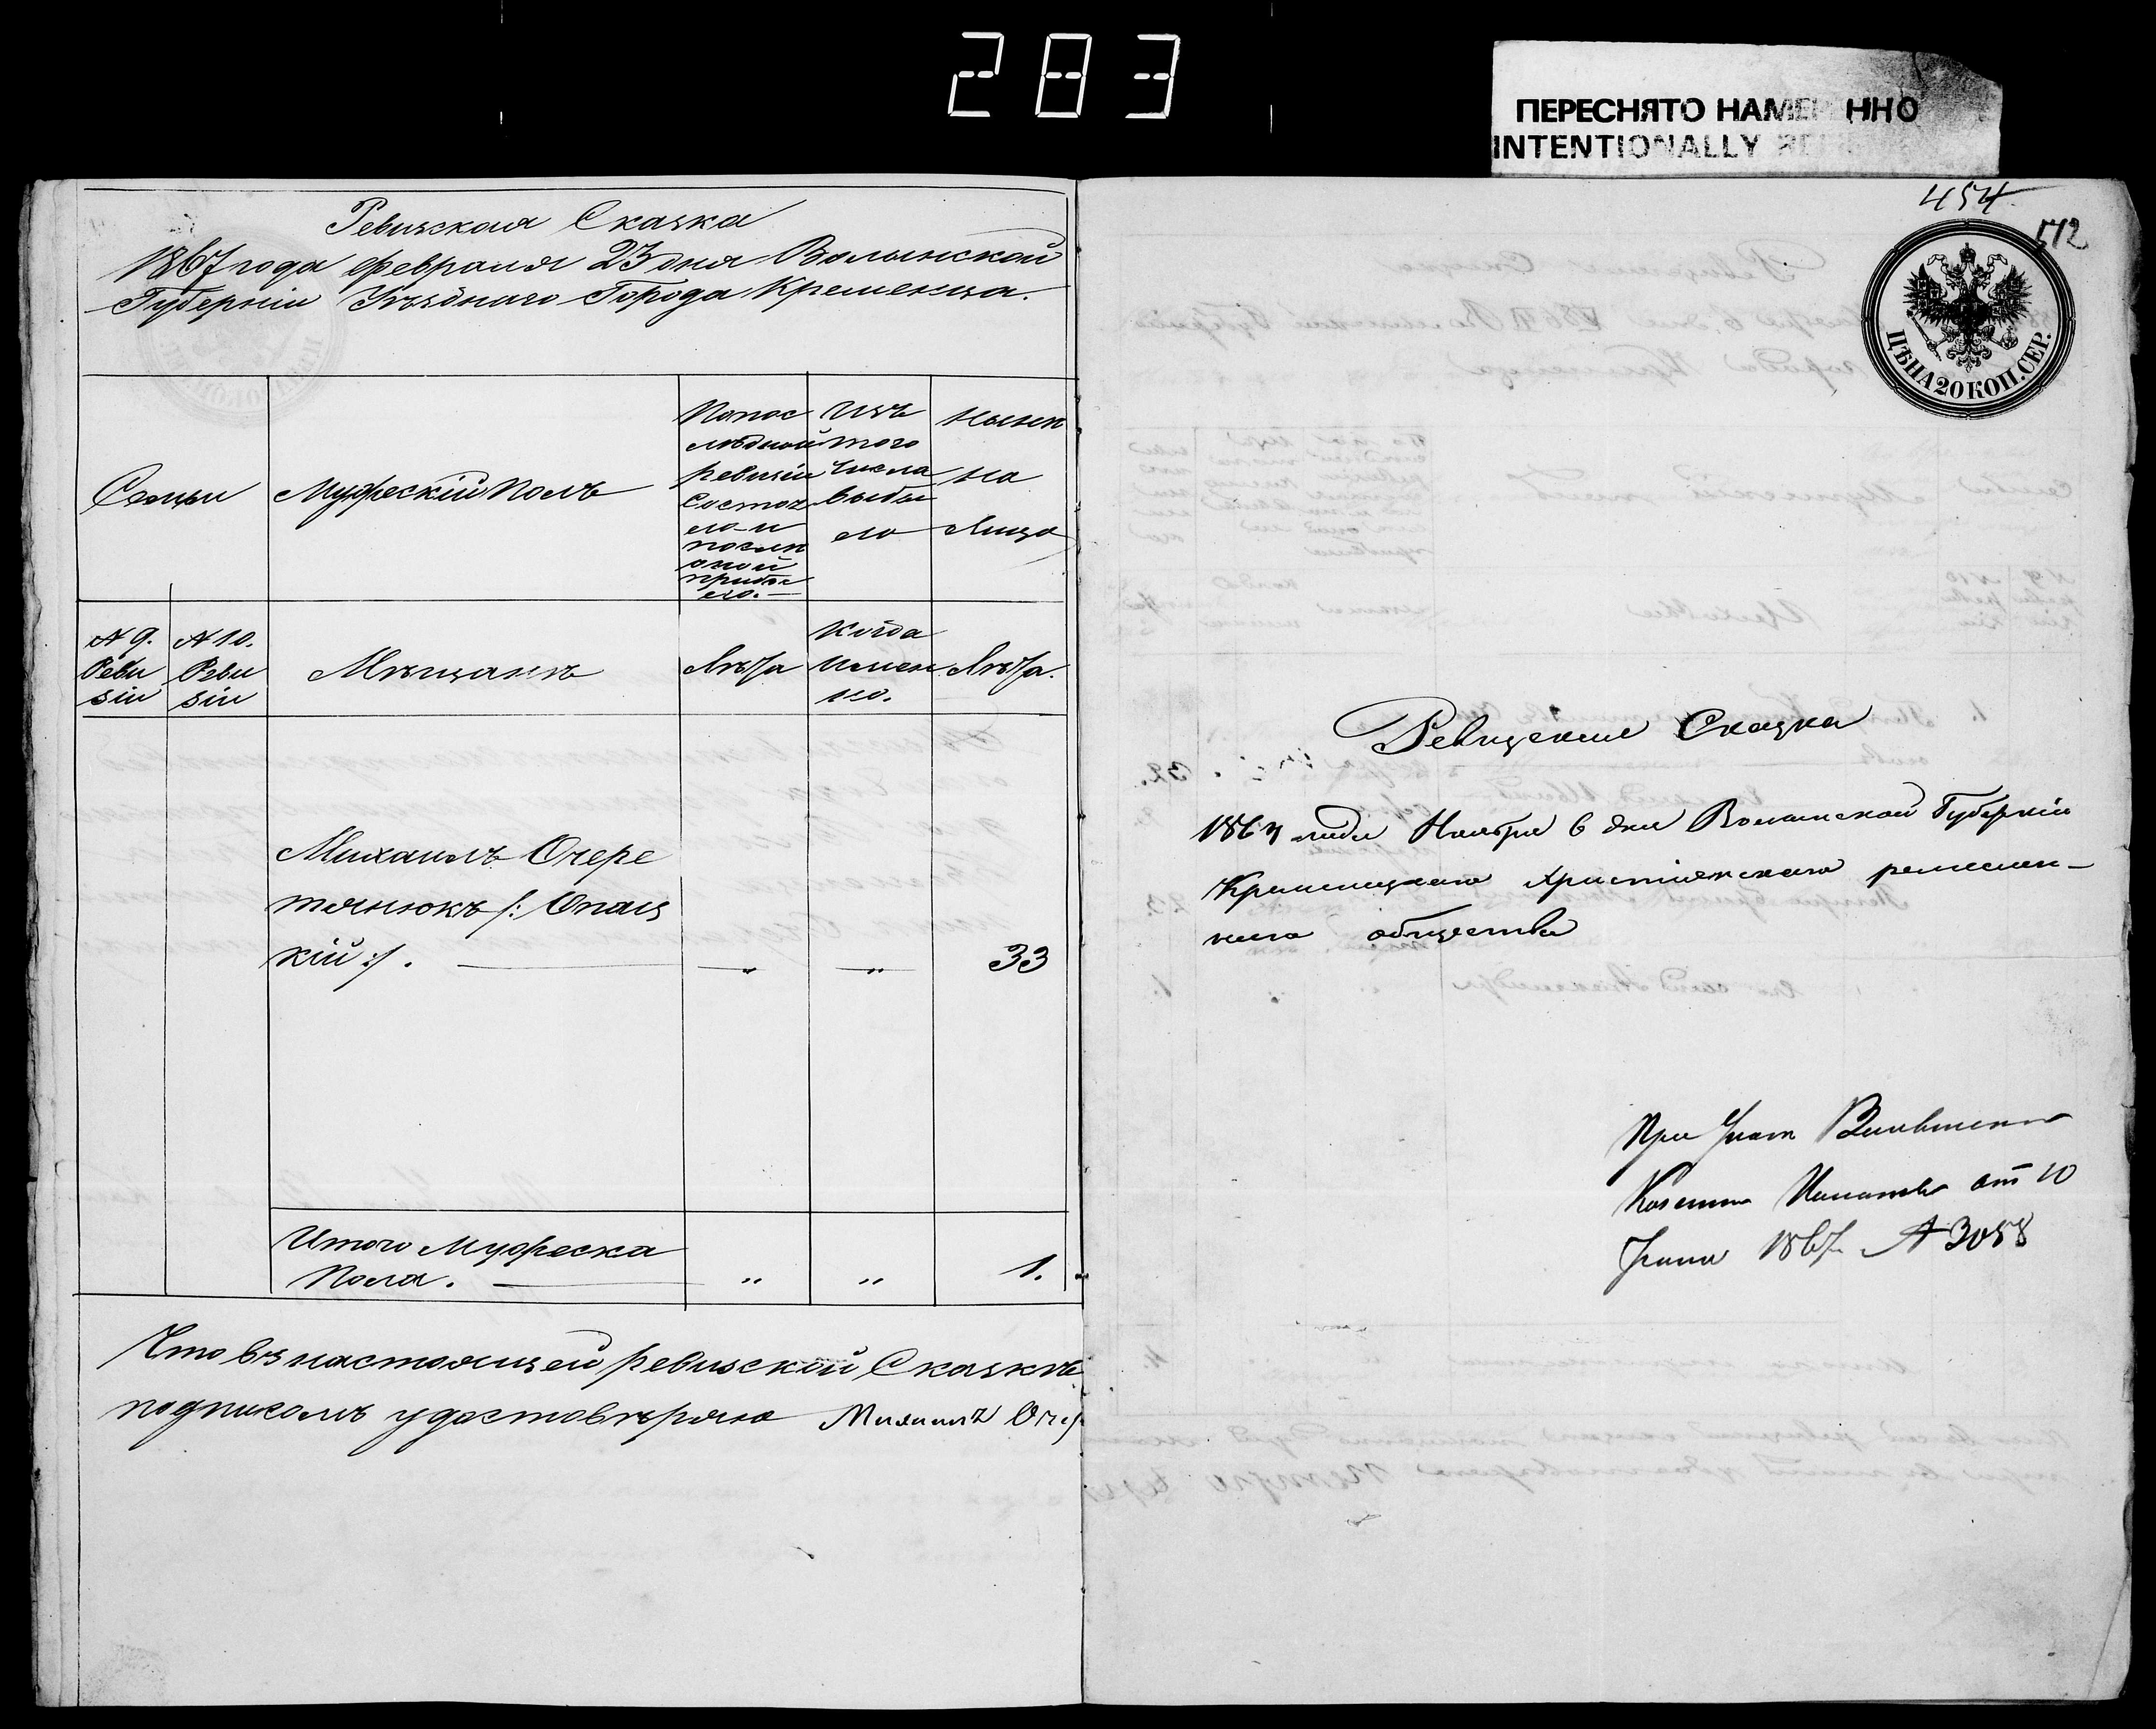 283
ПЕРЕСНЯТО НАМЕ ННО
INTENTIONALLY
Ревизская Сказка
1867 года февраля 23 дня Волынской
Губерніи Уѣзднаго Города Кременца.
Семьи
Мужескій Полъ
Попос
лѣдной
ревизіи
Состоя
ло и
послѣ
оной
прибы
ло.
Изъ
того
Числа
выбы
ло
Нынѣ
на
Лицо
№ 9.
Реви
зіи
№ 10.
Реви
зіи
Мѣщанъ
Лѣта
Когда
Имен
но.
Лѣта.
Михаилъ Очере
тянюкъ /: Опац
кій :/. — „ — „ 33
Итого Мужеска
Пола. — „ „ 1.
Что въ настоящей ревизской Сказкѣ
подписомъ удостовѣряю Михаилъ Очер
454
512
ЦѢНА 20 КОП. СЕР.
Ревизская Сказка
1867 года Ноября 6 дня Волынской Губерніи
Кременецкаго Христіянскаго ремеслен-
наго общества
При Указѣ Волынской
Казенной Палаты от 10
1867 № 3058